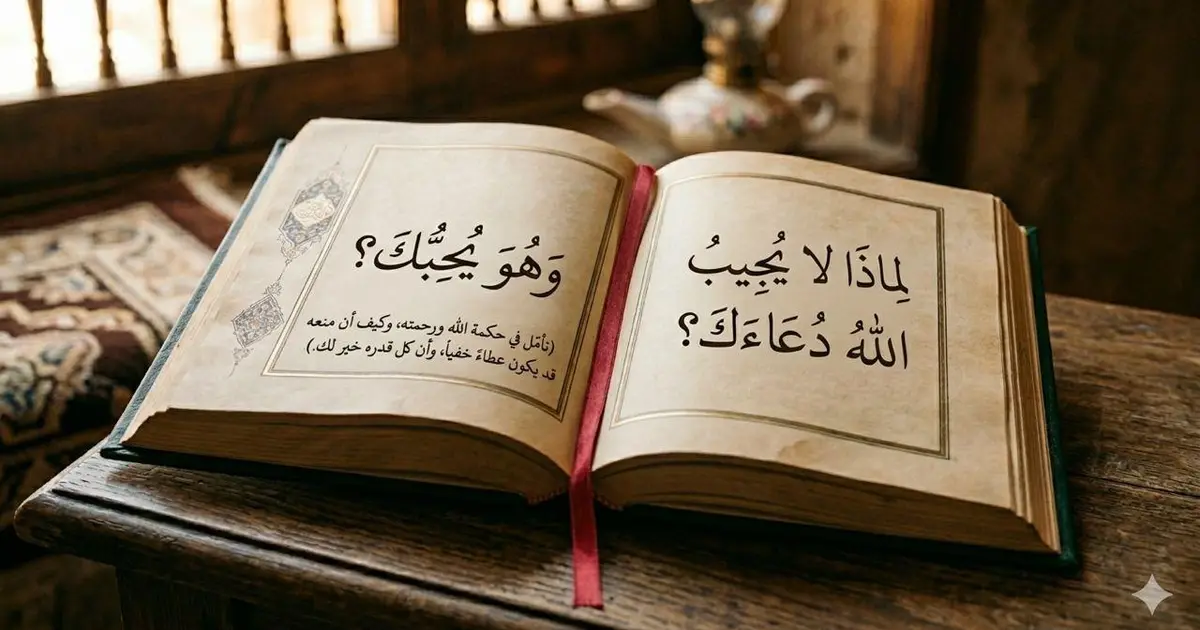 لِمَاذَا لَا يُجِيبُ
اللهُ دُعَاءَكَ؟
وَهُوَ يُحِبُّكَ؟
(تأمّل في حكمة الله ورحمته، وكيف أن منعه
قد يكون عطاءً خفياً، وأن كل قدره خير لك.)